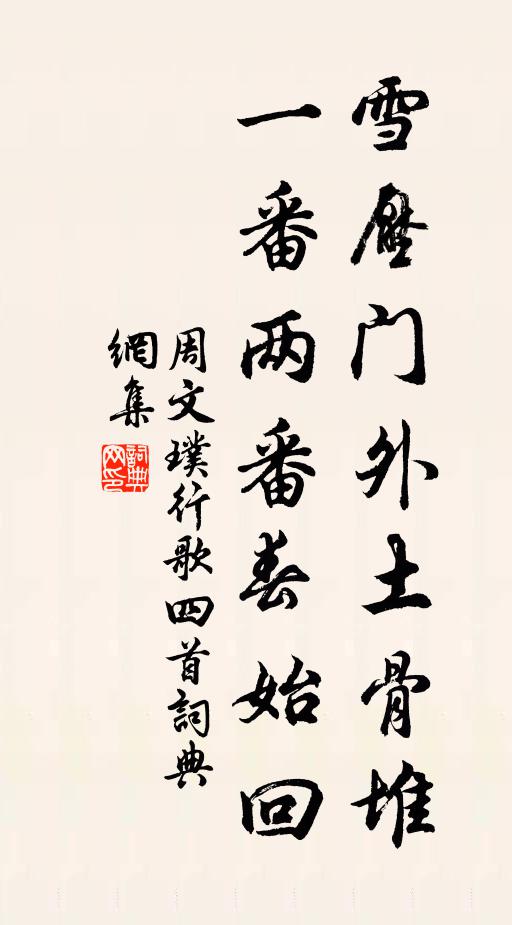 雪壓门外土骨堆
一番两番春始回
周文璞行歌四首詞典
網集
詞典
网印